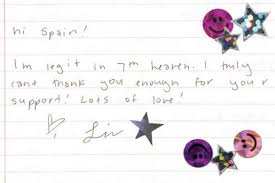 hi Spain!
I'm legit in 7th heaven. I truly
cant thank you enough for your
support! Lots of love!
Liv